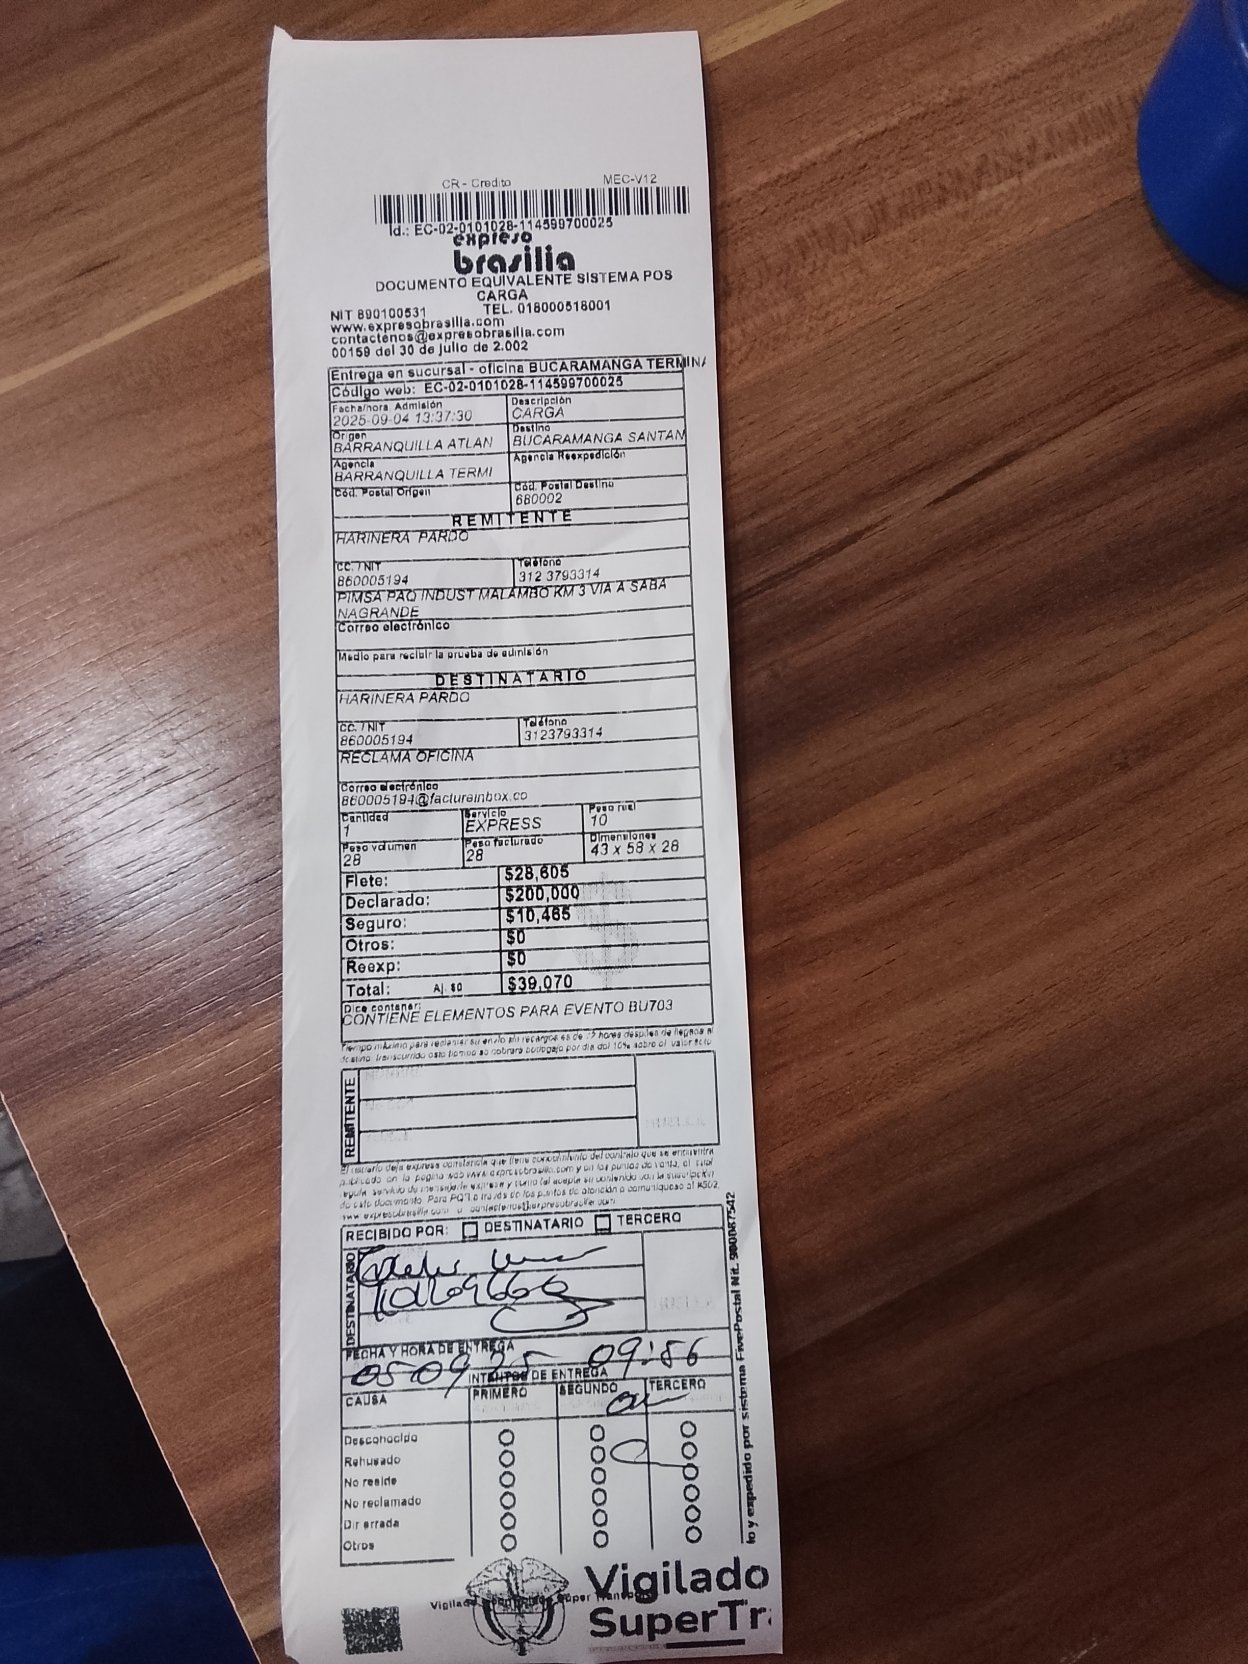 CR - Credito MEC-V12
Id.: EC-02-0101028-114599700025
expreso
brasilia
DOCUMENTO EQUIVALENTE SISTEMA POS
CARGA
NIT 890100531 TEL. 018000518001
www.expresobrasilia.com
contactenos@expresobrasilia.com
00159 del 30 de julio de 2.002
Entrega en sucursal - oficina BUCARAMANGA TERMINA
Código web: EC-02-0101028-114599700025
Fecha/hora Admisión Descripción
2025-09-04 13:37:30 CARGA
Origen Destino
BARRANQUILLA ATLAN BUCARAMANGA SANTAN
Agencia Agencia Reexpedición
BARRANQUILLA TERMI
Cód. Postal Origen Cód. Postal Destino
680002
REMITENTE
HARINERA PARDO
CC. / NIT Teléfono
860005194 312 3793314
PIMSA PAQ INDUST MALAMBO KM 3 VIA A SABA
NAGRANDE
Correo electrónico
Medio para recibir la prueba de admisión
DESTINATARIO
HARINERA PARDO
CC. / NIT Teléfono
860005194 3123793314
RECLAMA OFICINA
Correo electrónico
860005194@factureinbox.co
Cantidad Servicio Peso real
1 EXPRESS 10
Peso volumen Peso facturado Dimensiones
28 28 43 x 58 x 28
Flete: $28,605
Declarado: $200,000
Seguro: $10,465
Otros: $0
Reexp: $0
Total: Aj. $0 $39,070
Dice contener:
CONTIENE ELEMENTOS PARA EVENTO BU703
Tiempo máximo para reclamar su envío sin recargos es de 72 horas después de llegada al
destino, transcurrido este tiempo se cobrará bodegaje por día del 10% sobre el valor
REMITENTE
El usuario deja expresa constancia que tiene conocimiento del contrato que se encuentra
publicado en la pagina web www.expresobrasilia.com y en los puntos de venta, el cual
regula servicio de mensajería expresa y carga
de este documento. Para PQR a través de los puntos de atención o comuníquese al #502,
www.expresobrasilia.com o contactenos@expresobrasilia.com
RECIBIDO POR: DESTINATARIO TERCERO
DESTINATARIO
FECHA Y HORA DE ENTREGA
05-09-25 09:56
INTENTOS DE ENTREGA
CAUSA PRIMERO SEGUNDO TERCERO
Desconocido
Rehusado
No reside
No reclamado
Dir errada
Otros
lo y expedido por sistema FivePostal Nit. 900087542
Vigilado
SuperTra